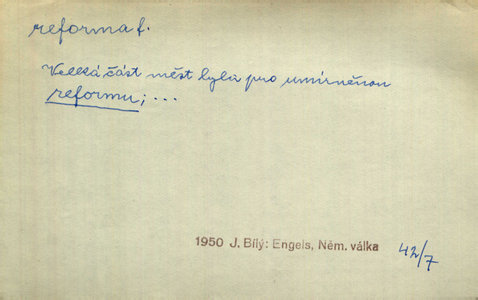 reforma f.
Velká část měst byla pro umírněnou
reformu; ...
1950 J. Bílý: Engels, Něm. válka
42/7